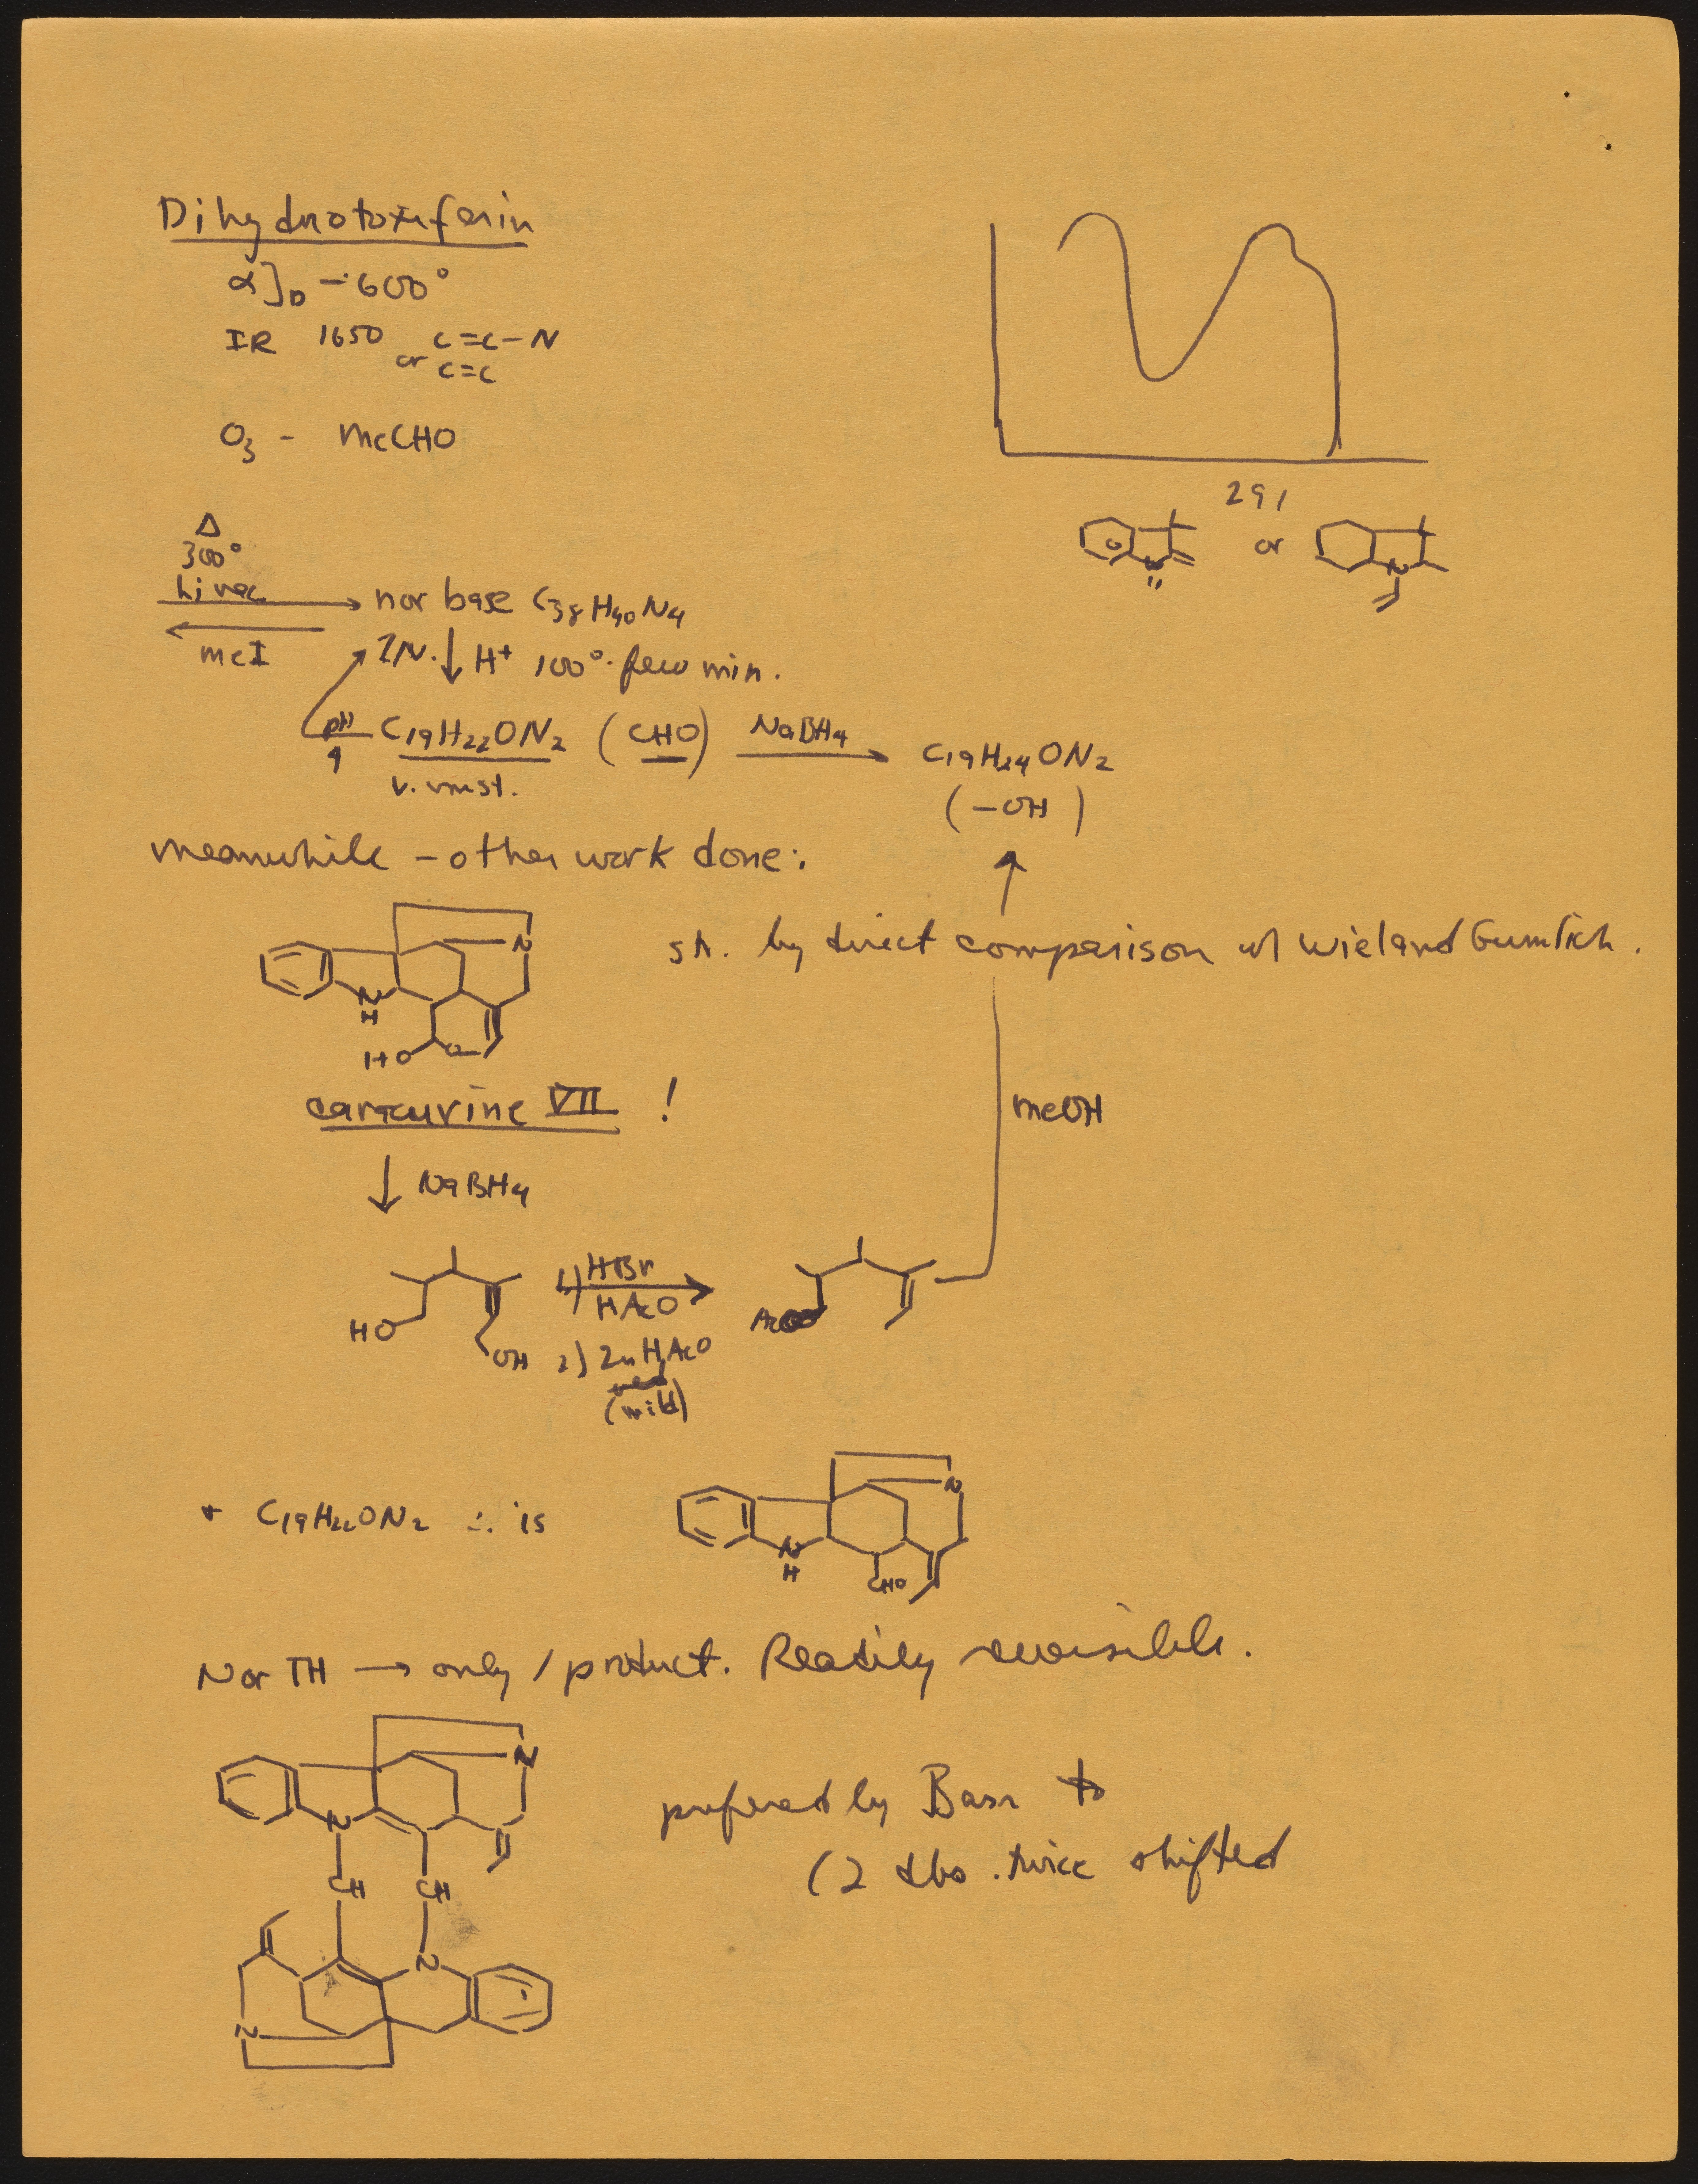 Dihydrotoxiferin
α]D -600°
IR 1650 C=C-N
or C=C
O3 - MeCHO
291
N or N
Δ
300°
hi vac
nor base C38H40N4
MeI
2N. ↓ H+ 100° few min.
pH
4
C19H22ON2 (CHO) NaBH4 → C19H24ON2
v. unst.
(-OH)
meanwhile - other work done:
N
N
H
HO O
sh. by direct comparison w/ Wieland Gumlich.
caracurine VII !
MeOH
↓ NaBH4
HO
OH
1) HBr
HAcO
2) Zn HAcO
(mild)
AcO
+ C19H22ON2 ∴ is
N
N
H
CHO
Nor TH → only 1 product. Readily reversible.
N
N
CH CH
N
N
prefered by Basr to
(2 dbs. twice shifted